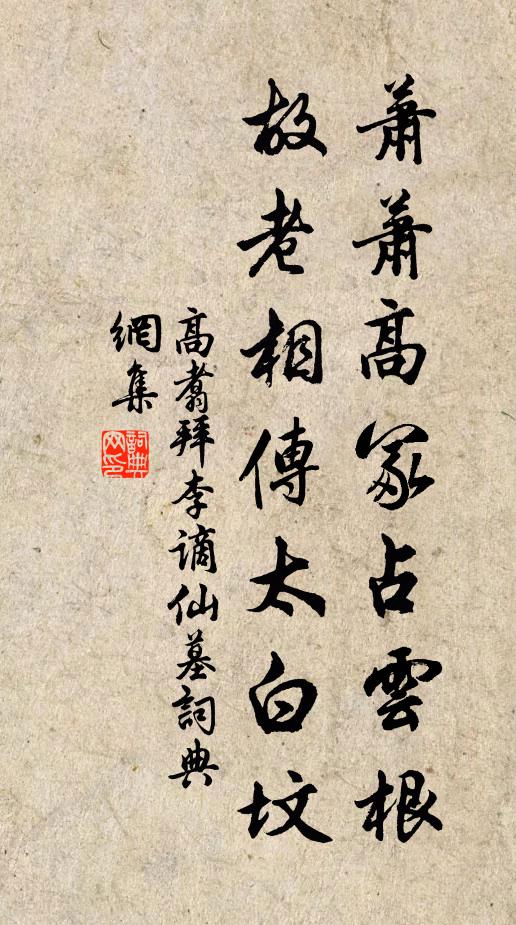 蕭蕭高冢占雲根
故老相傳太白坟
高翥拜李謫仙墓詞典
網集
詞典
网印